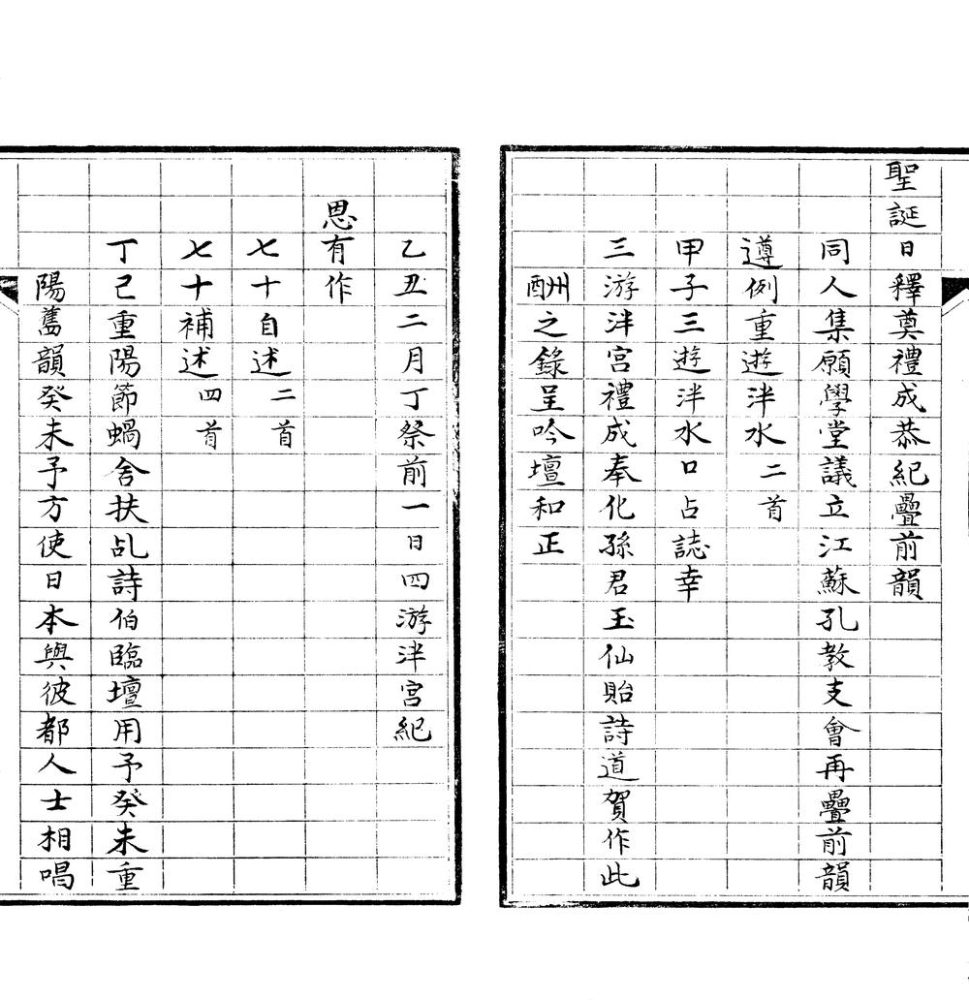 聖誕日釋奠禮成恭紀疊前韻
同人集願學堂議立江蘇孔教支會再疊前韻
遵例重遊泮水二首
甲子三遊泮水口占誌幸
三游泮宮禮成奉化孫君玉仙貽詩道賀作此
酬之錄呈吟壇和正
乙丑二月丁祭前一日四游泮宮紀
恩有作
七十自述二首
七十補述四首
丁己重陽節蝸舍扶乩詩伯臨壇用予癸未重
陽舊韻癸未予方使日本與彼都人士相唱